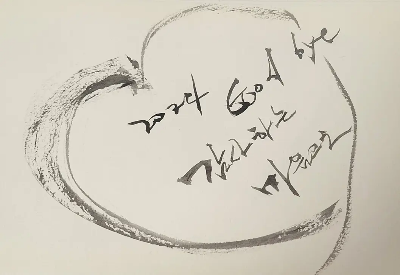 2024 Good bye
감사하는
마음으로